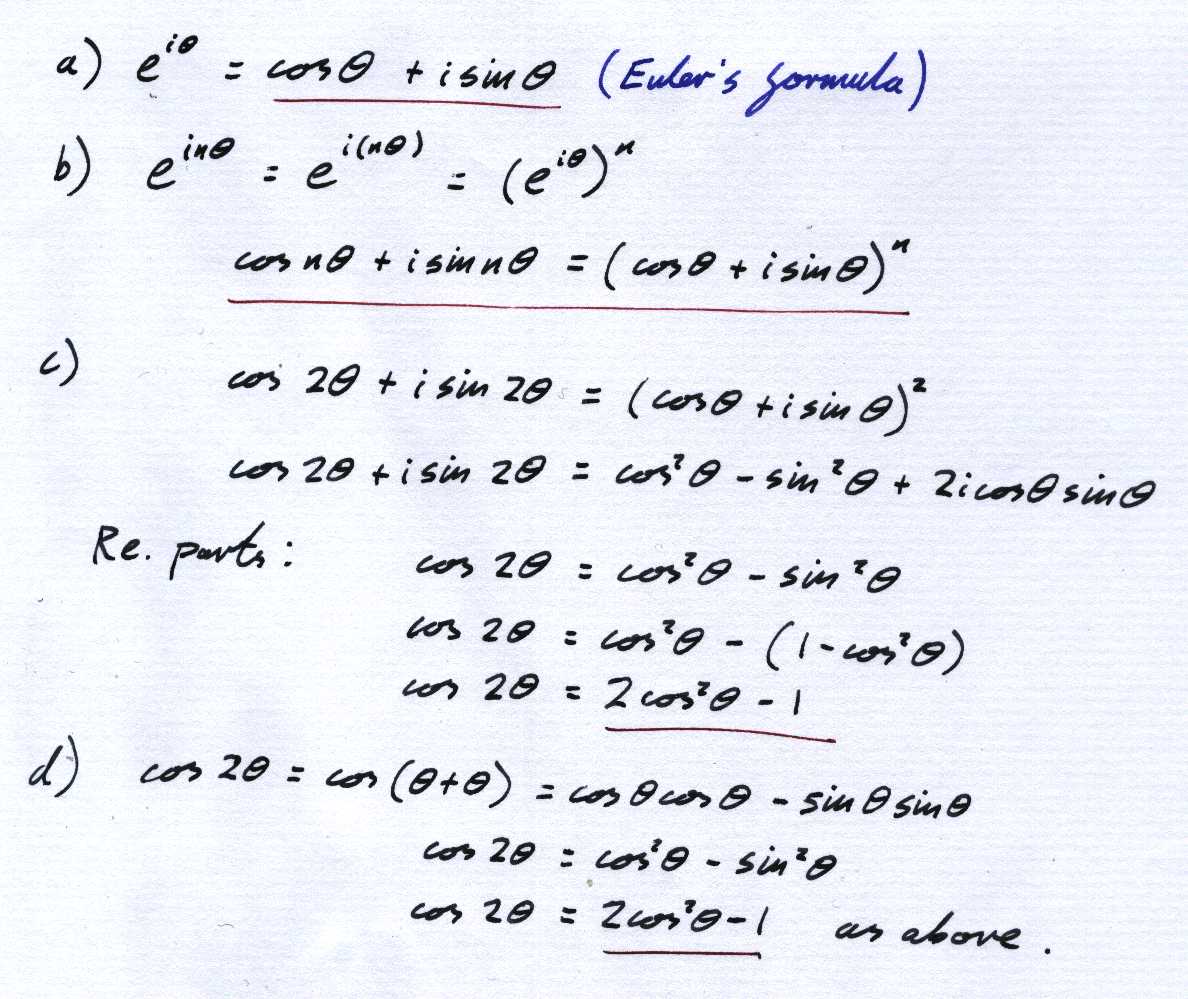 a) e^{iθ} = cosθ + i sinθ (Euler's formula)
b) e^{inθ} = e^{i(nθ)} = (e^{iθ})^n
cos nθ + i sin nθ = (cosθ + i sinθ)^n
c) cos 2θ + i sin 2θ = (cosθ + i sin θ)²
cos 2θ + i sin 2θ = cos²θ - sin²θ + 2i cosθ sinθ
Re. parts: cos 2θ = cos²θ - sin²θ
cos 2θ = cos²θ - (1 - cos²θ)
cos 2θ = 2cos²θ - 1
d) cos 2θ = cos (θ+θ) = cos θ cos θ - sin θ sin θ
cos 2θ = cos²θ - sin²θ
cos 2θ = 2cos²θ - 1 as above.